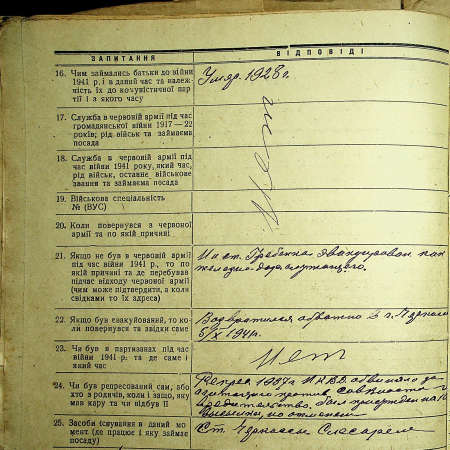 ЗАПИТАННЯ ВІДПОВІДІ
16. Чим займались батьки до війни
1941 р. і в даний час та належ-
ність їх до комуністичної пар-
тії і з якого часу
Умер. 1928 г.
17. Служба в червоній армії під час
громадянської війни 1917—22
років; рід військ та займаєма
посада
18. Служба в червоній армії під
час війни 1941 року, який час,
рід військ, останнє військове
звання та займаєма посада
нет
19. Військова спеціальність
№ (ВУС)
20. Коли повернувся з червоної
армії та по якій причині
21. Якщо не був в червоній армії
під час війни 1941 р., то по
якій причині та де перебував
під час відходу червоної армії
(чим може підтвердити, а коли
свідками то їх адреса)
На ст. Гребенка эвакуирован как
железно-дорслужащего.
22. Якщо був евакуйований, то ко-
ли повернувся та звідки саме
Возвратился обратно в г.
5/X 1941г.
23. Чи був в партизанах під час
війни 1941 р. та де саме і
який час
Нет
24. Чи був репресований сам, або
хто з родичів, коли і защо, яку
мав кару та чи відбув її
Репрес 1937г НКВД обвиняло за
агитацию против совнласти
был присужден на 10
высылки, но отменен
25. Засоби існування в даний мо-
мент (де працює і яку займає
посаду)
Ст. Черкассы Слесарем